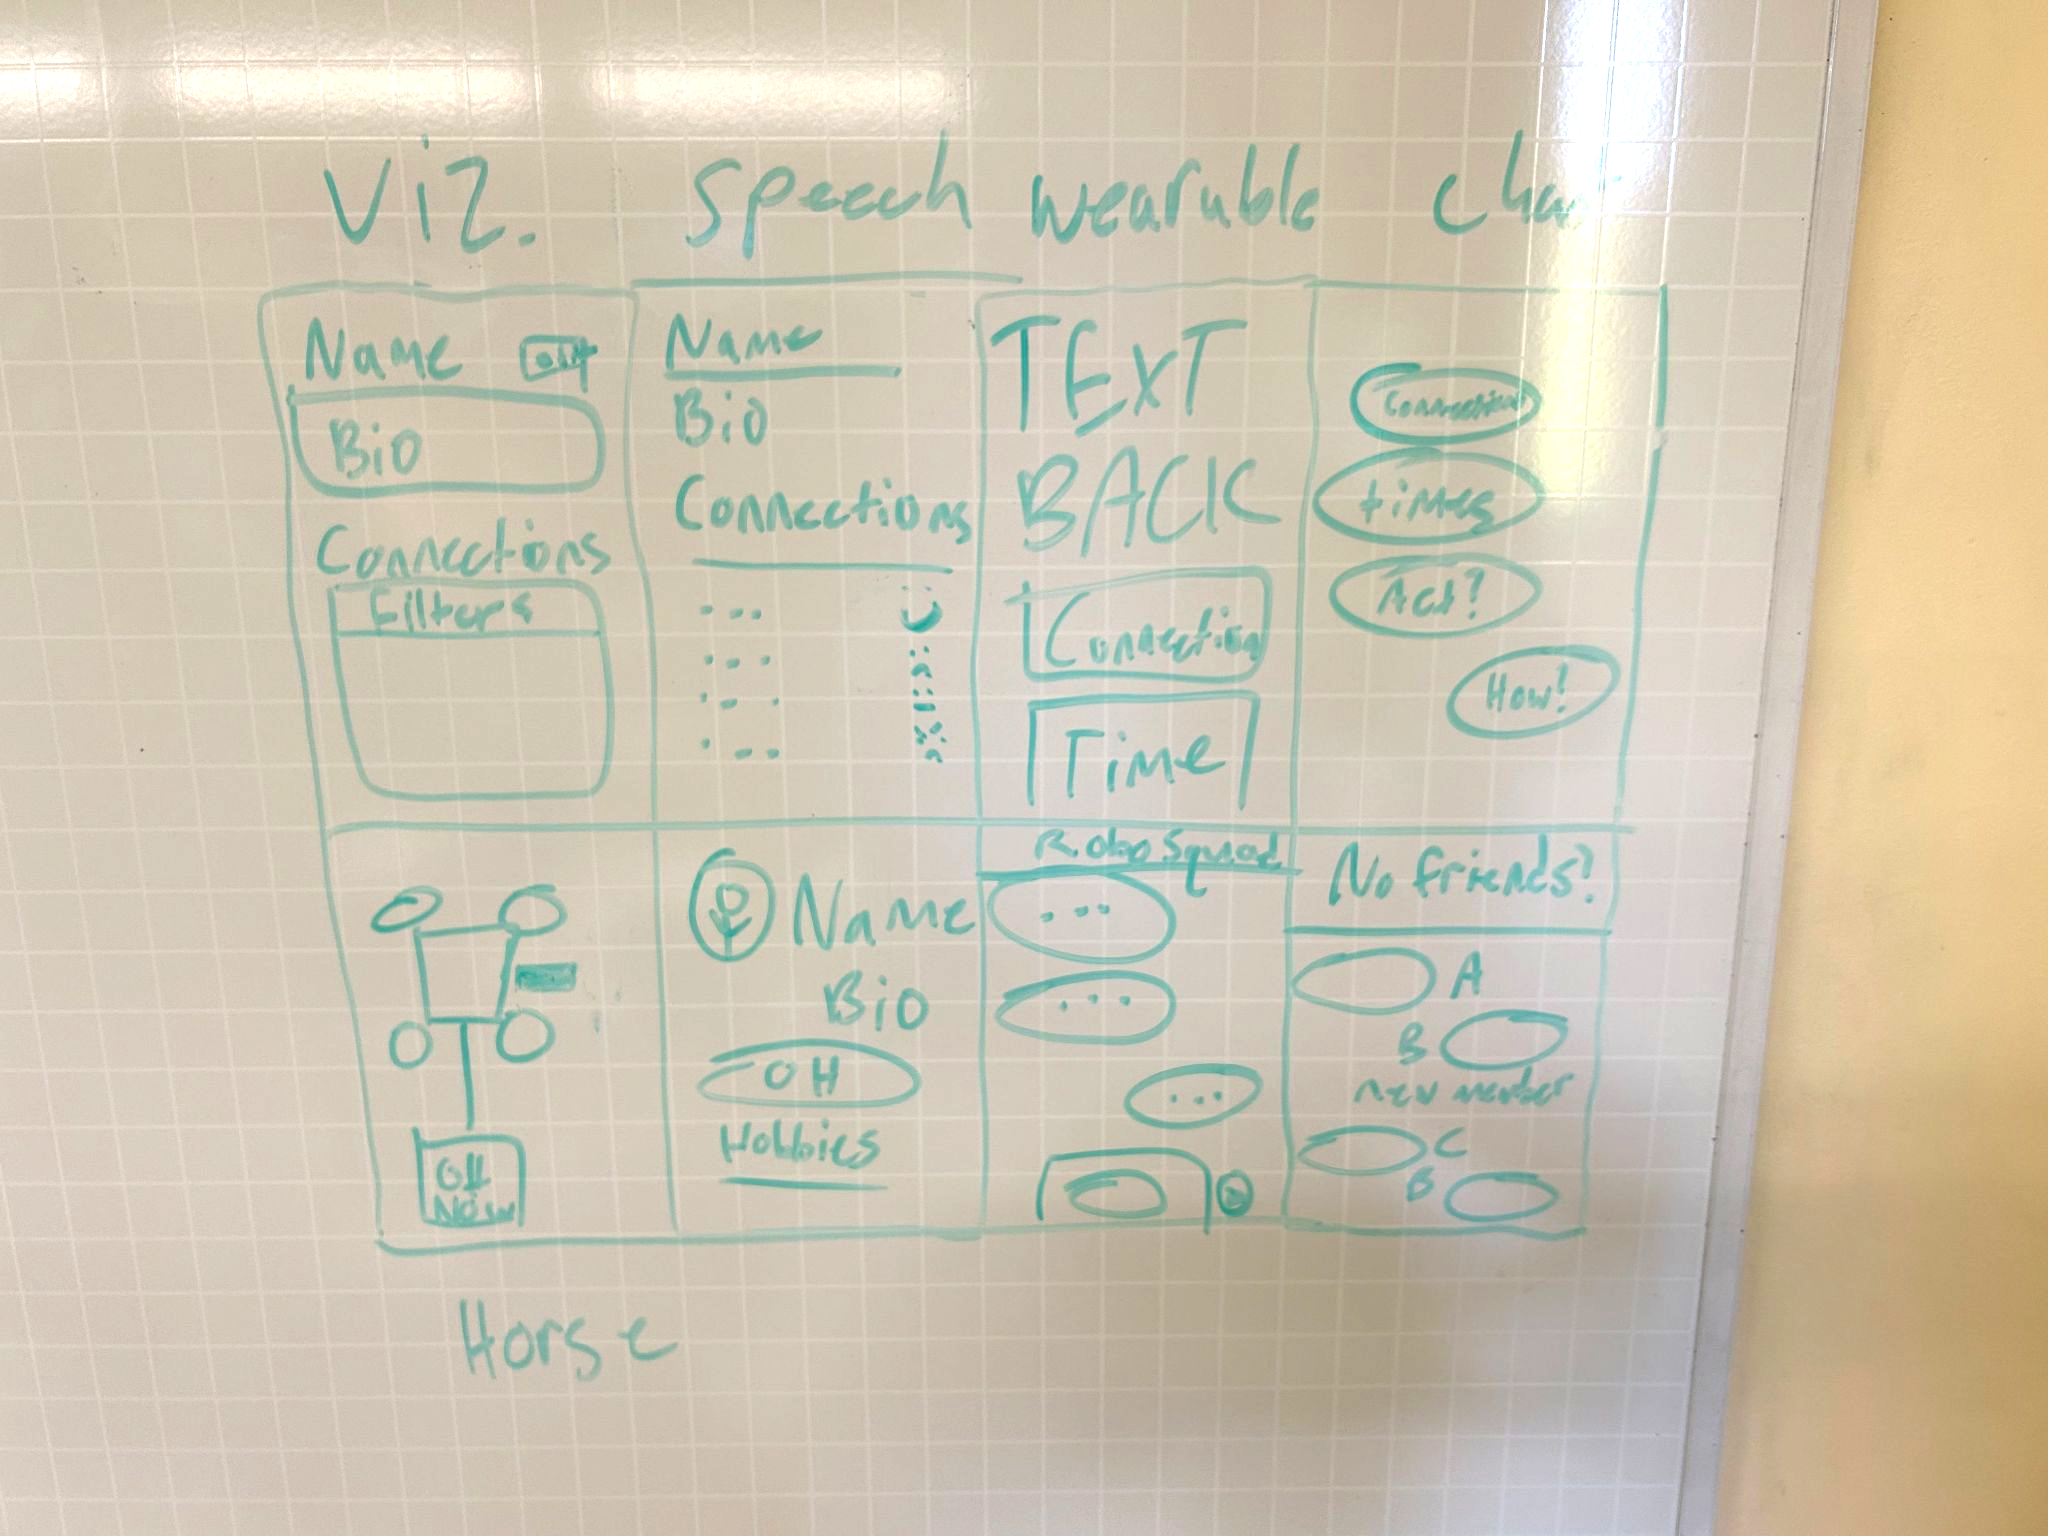 Viz. Speech wearable
Name
Bio
Connections
Filters
Name
Bio
Connections
TEXT
BACK
Connection
Time
Connection
times
Act?
How!
OH
Now
Name
Bio
OH
Hobbies
Robo Squad
No friends?
A
B
new member
C
B
Horse